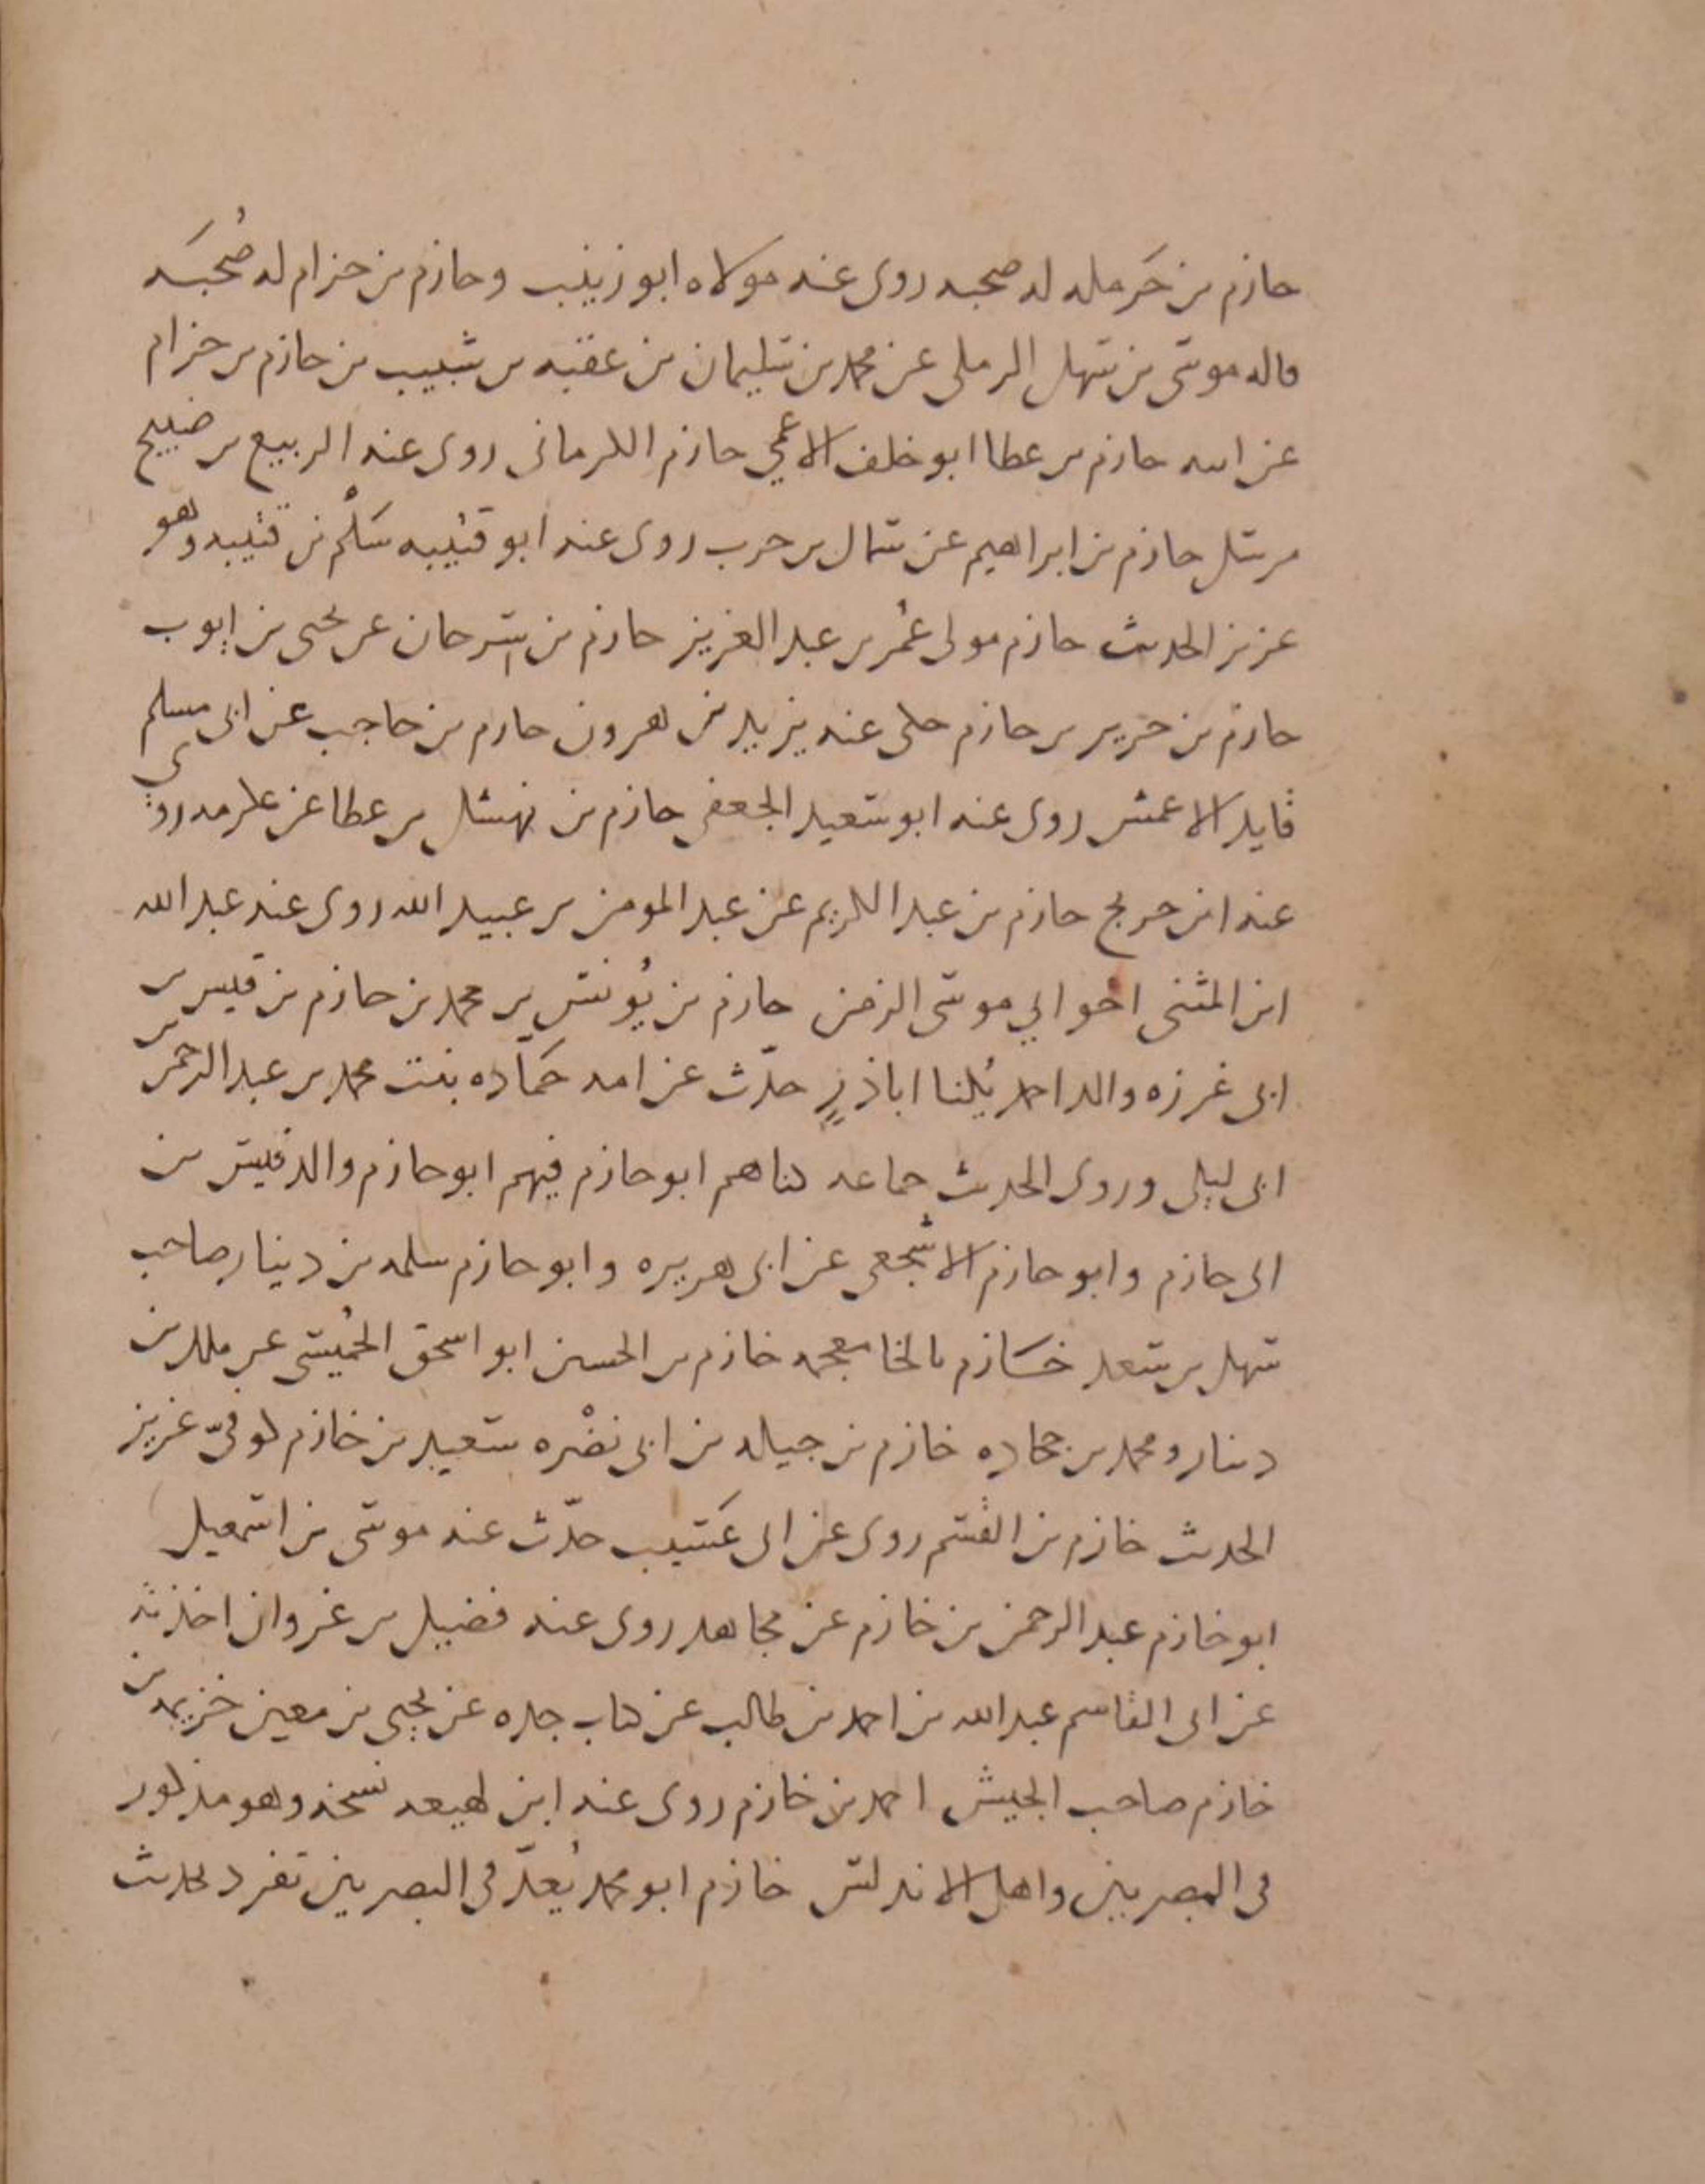 حازم بن حَرملة له صحبة روى عنه مولاه ابو زينب وحازم بن حزام له صُحبَة
قاله موسى بن سهل الرملى عن محمد بن سليمان بن عقبه بن شبيب بن حازم بن حزام
عن ابيه حازم بن عطا ابو خلف الاعمي حازم الكرمانى روى عنه الربيع بن صبيح
مرسل حازم بن ابراهيم عن سماك بن حرب روى عنه ابو قتيبه سَلْم بن قتيبه وهو
عزيز الحديث حازم مولى عُمر بن عبد العزيز حازم بن سرحان عن يحيى بن ايوب
حازم بن جرير بن حازم حكى عنه يزيد بن هرون حازم بن حاجب عن ابى مسلم
قايد الاعمش روى عنه ابو سعيد الجعفى حازم بن نهشل بن عطا عن عكرمه روى
عنه ابن جريج حازم بن عبد الكريم عن عبد المومن بن عبيد الله روى عنه عبد الله
ابن المثنى اخو ابي موسى الزمن حازم بن يُونس بن محمد بن حازم بن قيس بن
ابى غرزه والد احمد يُكنا اباذرٍ حدّث عن امه حمّاده بنت محمد بن عبد الرحمن بن
ابى ليلى وروى الحديث جماعه كناهم ابو حازم فيهم ابو حازم والد قيس بن
ابى حازم وابو حازم الاشجعى عن ابى هريره وابو حازم سلمه بن دينار صاحب
سهل بن سعد خَازم بالخا معجمه خازم بن الحسين ابو اسحق الحُميسى عن ملك بن
دينار ومحمد بن جحاده خازم بن جبله بن ابى نضْره سعيد بن خازم كوفىّ عزيز
الحديث خازم بن القسم روى عن ابى عَسيب حدّث عنه موسى بن اسمعيل
ابو خازم عبد الرحمن بن خازم عن مجاهد روى عنه فضيل بن غزوان اخذته
عن ابى القاسم عبد الله بن احمد بن طالب عن كتاب جده عن يحيى بن معين خزيمه بن
خازم صاحب الجيش احمد بن خازم روى عنه ابن لهيعه نسخه وهو مذكور
فى المصريين واهل الاندلس خازم ابو محمد يُعدّ فى البصريين تفرد بحديث